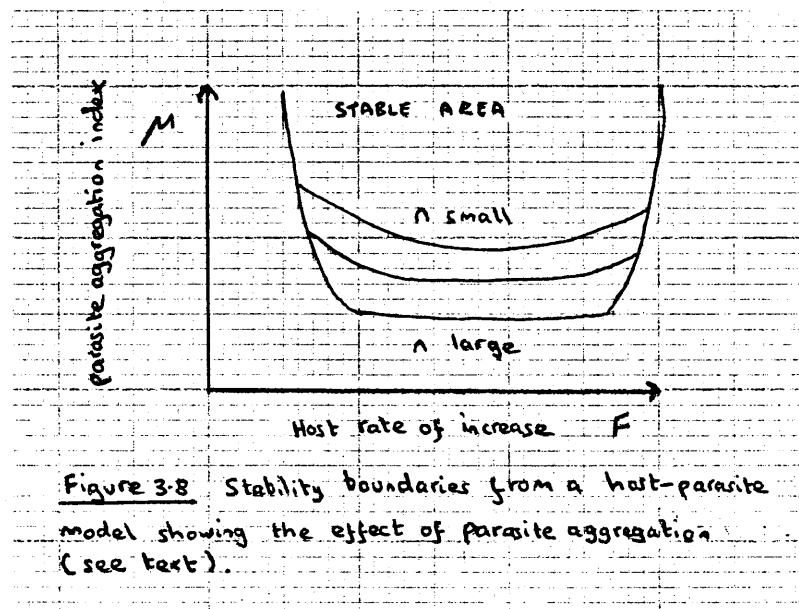 STABLE AREA
parasite aggregation index
μ
n small
n large
Host rate of increase F
Figure 3.8 Stability boundaries from a host-parasite
model showing the effect of parasite aggregation
(see text).